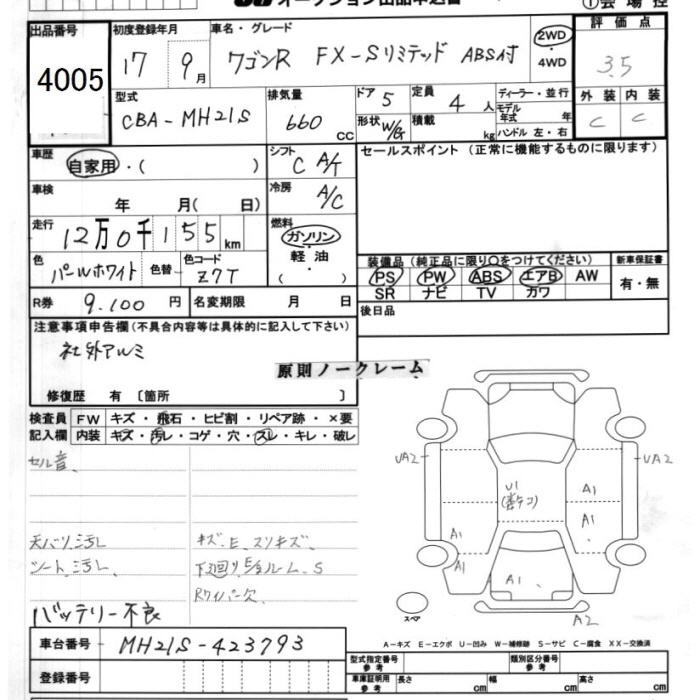 ①会場控
出品番号 初度登録年月 車名・グレード 2WD ・ 4WD 評価点
4005 17 9月 ワゴンR FX-Sリミテッド ABS付 3.5
型式 排気量 ドア 5 定員 4人 ディーラー・並行 外装 内装
CBA-MH21S 660 CC 形状 W/G 積載 kg モデル年式 年 C C
ハンドル 左・右
車歴 自家用・( ) シフト C A/T セールスポイント (正常に機能するものに限ります)
車検 年 月(日) 冷房 A/C
走行 12万0千155km 燃料 ガソリン・軽油 ( )
色 パールホワイト 色替 色コード Z7T 装備品(純正品に限り○をつけてください) 新車保証書
PS PW ABS エアB AW 有・無
SR ナビ TV カワ
R券 9,100円 名変期限 月 日 後日品
注意事項申告欄(不具合内容等は具体的に記入して下さい)
社外アルミ
原則ノークレーム
修復歴 有 〔箇所 〕
検査員 FW キズ・飛石・ヒビ割・リペア跡・×要
記入欄 内装 キズ・汚レ・コゲ・穴・スレ・キレ・破レ
セル音
UA2 UA2
U1 A1
A1 A1
天バリ汚レ キズ、E、スリキズ、
シート汚レ、 下廻り S
A1 A1
Rワイパー欠
バッテリー不良
スペア A2
車台番号 MH21S-423793
A-キズ E-エクボ U-凹み W-補修跡 S-サビ C-腐食 XX-交換済
登録番号 型式指定番号 参考 類別区分番号 参考
車庫証明用 参考 長さ cm 幅 cm 高さ cm